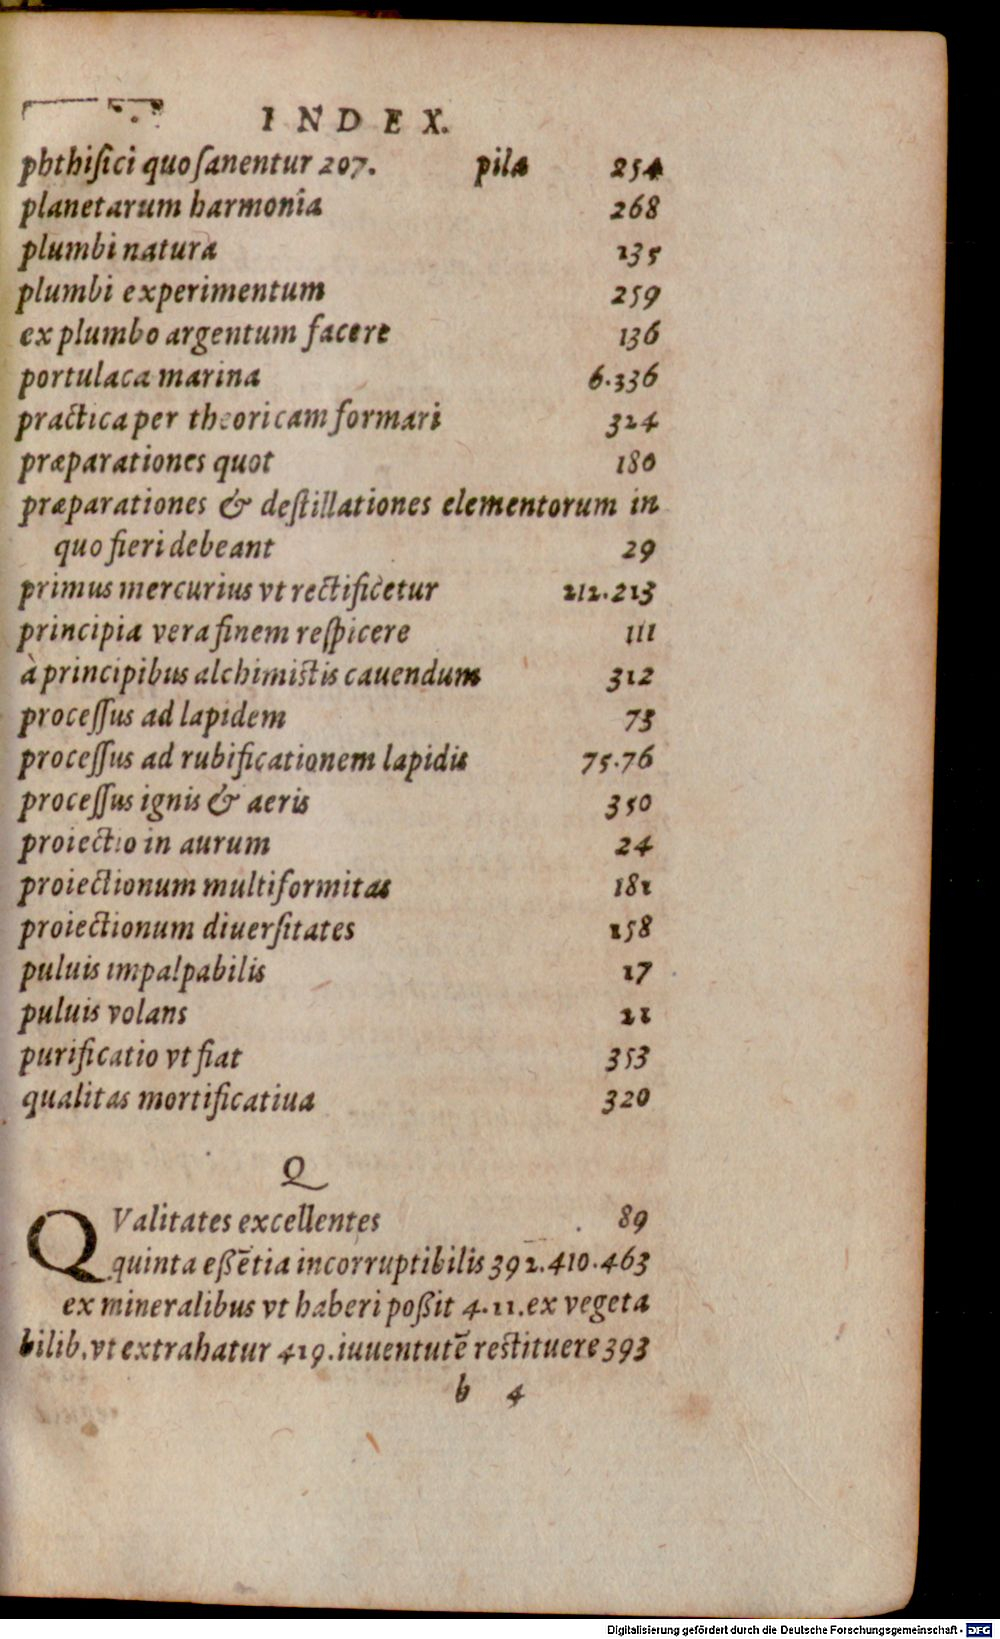 INDEX.
phthiſici quo ſanentur 207. pila 254
planetarum harmonia 268
plumbi natura 135
plumbi experimentum 259
ex plumbo argentum facere 136
portulaca marina 6.336
practica per theoricam formari 324
præparationes quot 180
præparationes & deſtillationes elementorum in
quo fieri debeant 29
primus mercurius vt rectificetur 212.213
principia vera finem reſpicere 111
à principibus alchimistis cauendum 312
proceſſus ad lapidem 73
proceſſus ad rubificationem lapidis 75.76
proceſſus ignis & aeris 350
proiectio in aurum 24
proiectionum multiformitas 181
proiectionum diuerſitates 158
puluis impalpabilis 17
puluis volans 21
purificatio vt fiat 353
qualitas mortificatiua 320
Q
QValitates excellentes 89
quinta eßētia incorruptibilis 392.410.463
ex mineralibus vt haberi poßit 4.11.ex vegeta
bilib.vt extrahatur 419.iuuentutē restituere 393
b 4
Digitalisierung gefördert durch die Deutsche Forschungsgemeinschaft - DFG